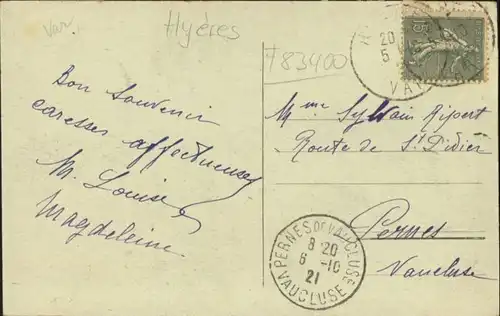 Var.
Hyères
F83400
15
20
5
VAR
Bon souvenir
caresses affectueuses
M. Louise
Magdeleine.
Mme Sylvain Ripert
Route de St Didier
Pernes
Vaucluse
PERNES DT VAUCLUSE
8 20
6 -10
21
VAUCLUSE